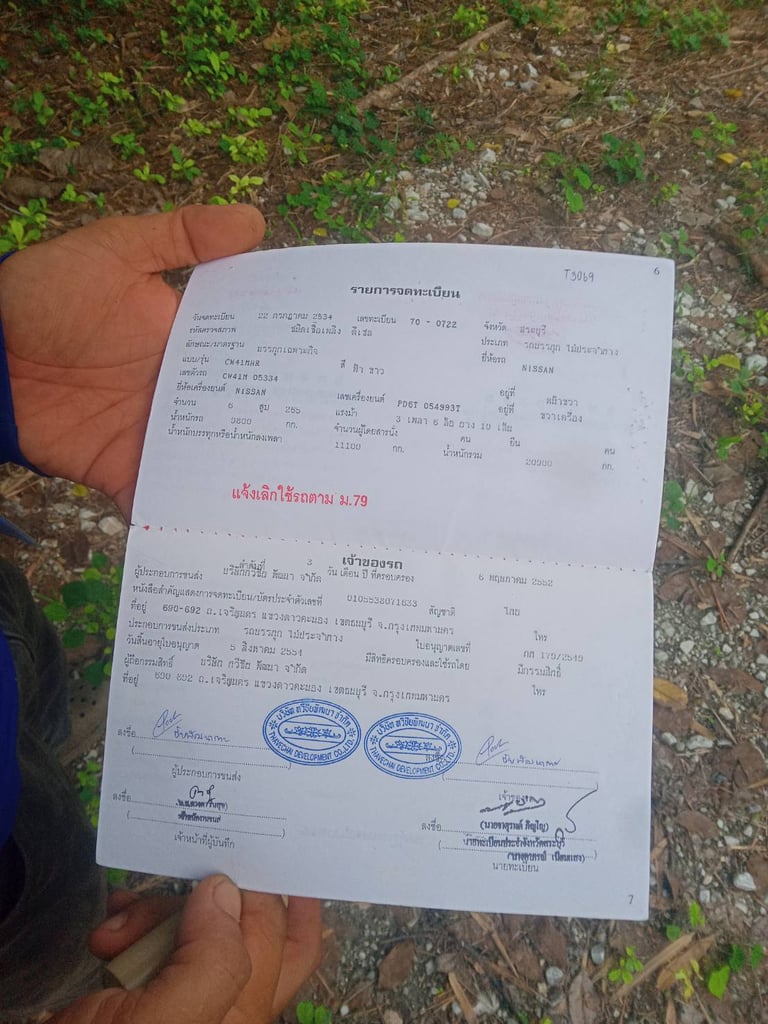 T5069
6
รายการจดทะเบียน
วันจดทะเบียน 22 กรกฎาคม 2534 เลขทะเบียน 70 - 0722 จังหวัด สระบุรี
รหัสตรวจสภาพ ชนิดเชื้อเพลิง ดีเซล ประเภท รถบรรทุก ไม่ประจำทาง
ลักษณะ/มาตรฐาน บรรทุกเฉพาะกิจ ยี่ห้อรถ NISSAN
แบบ/รุ่น CW41MHR สี ฟ้า ขาว
เลขตัวรถ CW41M 05334 อยู่ที่
ยี่ห้อเครื่องยนต์ NISSAN เลขเครื่องยนต์ PD6T 054993T อยู่ที่ ขวาเครื่อง
จำนวน 6 สูบ 265 แรงม้า 3 เพลา 6 ล้อ ยาง 10 เส้น
น้ำหนักรถ 9800 กก. จำนวนผู้โดยสารนั่ง คน ยืน คน
น้ำหนักบรรทุกหรือน้ำหนักลงเพลา 11100 กก. น้ำหนักรวม 20900 กก.
แจ้งเลิกใช้รถตาม ม.79
เจ้าของรถ
ลำดับที่ 3 วัน เดือน ปี ที่ครอบครอง 6 พฤษภาคม 2552
ผู้ประกอบการขนส่ง บริษัท ทวีชัย พัฒนา จำกัด
หนังสือสำคัญแสดงการจดทะเบียน/บัตรประจำตัวเลขที่ 0105538071633 สัญชาติ ไทย
ที่อยู่ 690-692 ถ.เจริญนคร แขวงดาวคะนอง เขตธนบุรี จ.กรุงเทพมหานคร โทร
ประกอบการขนส่งประเภท รถบรรทุก ไม่ประจำทาง ใบอนุญาตเลขที่
วันสิ้นอายุใบอนุญาต 5 สิงหาคม 2554 มีสิทธิครอบครองและใช้รถโดย มีกรรมสิทธิ์
ผู้ถือกรรมสิทธิ์ บริษัท ทวีชัย พัฒนา จำกัด
ที่อยู่ 690-692 ถ.เจริญนคร แขวงดาวคะนอง เขตธนบุรี จ.กรุงเทพมหานคร โทร
บริษัท ทวีชัยพัฒนา จำกัด
THAVECHAI DEVELOPMENT CO.,LTD.
บริษัท ทวีชัยพัฒนา จำกัด
THAVECHAI DEVELOPMENT CO.,LTD.
ลงชื่อ
ผู้ประกอบการขนส่ง
เจ้าของรถ
ลงชื่อ
ลงชื่อ
นายทะเบียนประจำจังหวัดสระบุรี
เจ้าหน้าที่ผู้บันทึก
นายทะเบียน
7